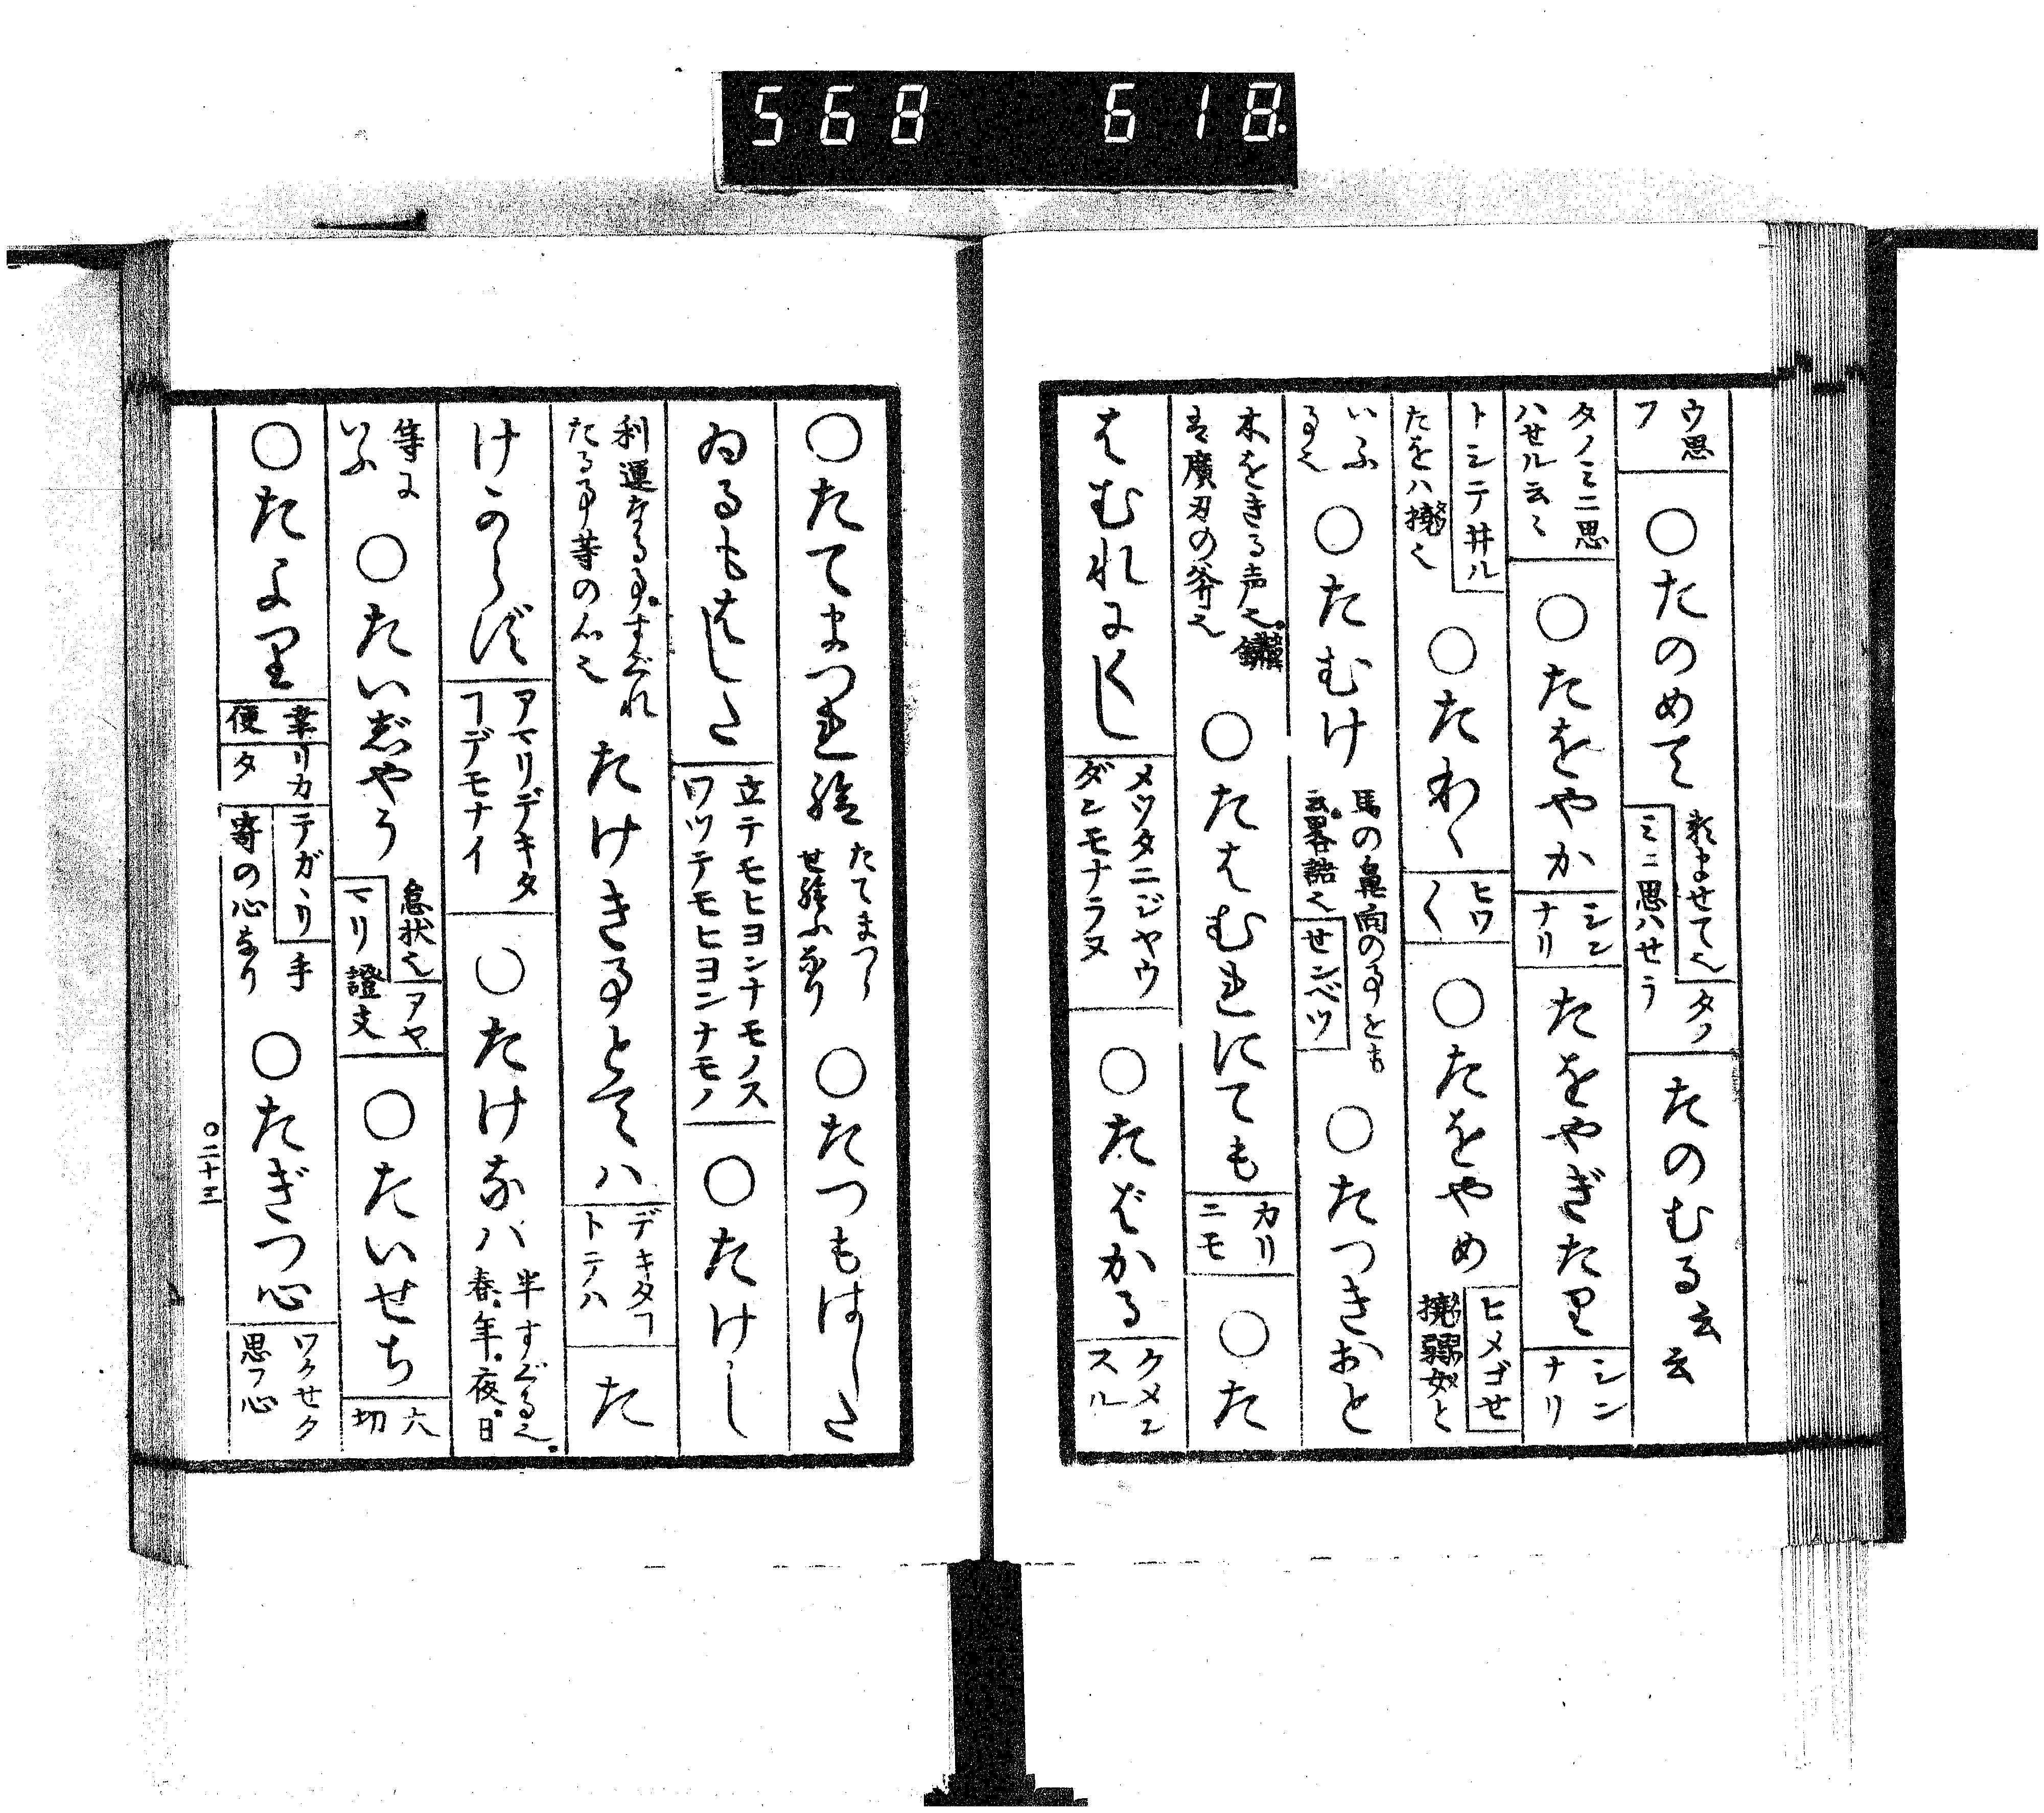 568 618
ウ思
フ
○たのめて
頼ませて也
タノ
ミニ思ハせラ
たのむる云云
タノミニ思
ハせル云〻
○たをやか
シン
ナリ
たをやぎたり
シン
ナリ
トシテ井ル
たをハ撓也
○たわく
ヒワ
く
○たをやめ
ヒメゴせ
撓弱女と
いふ
る也
○たむけ
馬の鼻向の事をも
云畧語也
せンベツ
○たつきおと
木をきる声也。鐇
は廣刃の斧也
○たはむれにても
カリ
ニモ
○た
はむれにくし
メツタニジヤウ
ダンモナラヌ
○たばかる
クメン
スル
○たてまつれ給
たてまつら
せ給ふ也
○たつもはした
ゐるもはした
立テモヒヨンナモノス
ワツテモヒヨンナモノ
○たけし
利運なる事。すぐれ
たる事等の心也
たけきこととてハ
デキタフ
トテハ
た
けからず
アマリデキタ
フデモナイ
○たけなハ
半すぐる也。
春。年。夜。日
等に
いふ
○たいじやう
怠状也
アヤ
マリ證文
○たいせち
大
切
○たより
幸
便
リカ
タ
テガヽリ
手
寄の心なり
○たぎつ心
ワクせク
思フ心
○二十三